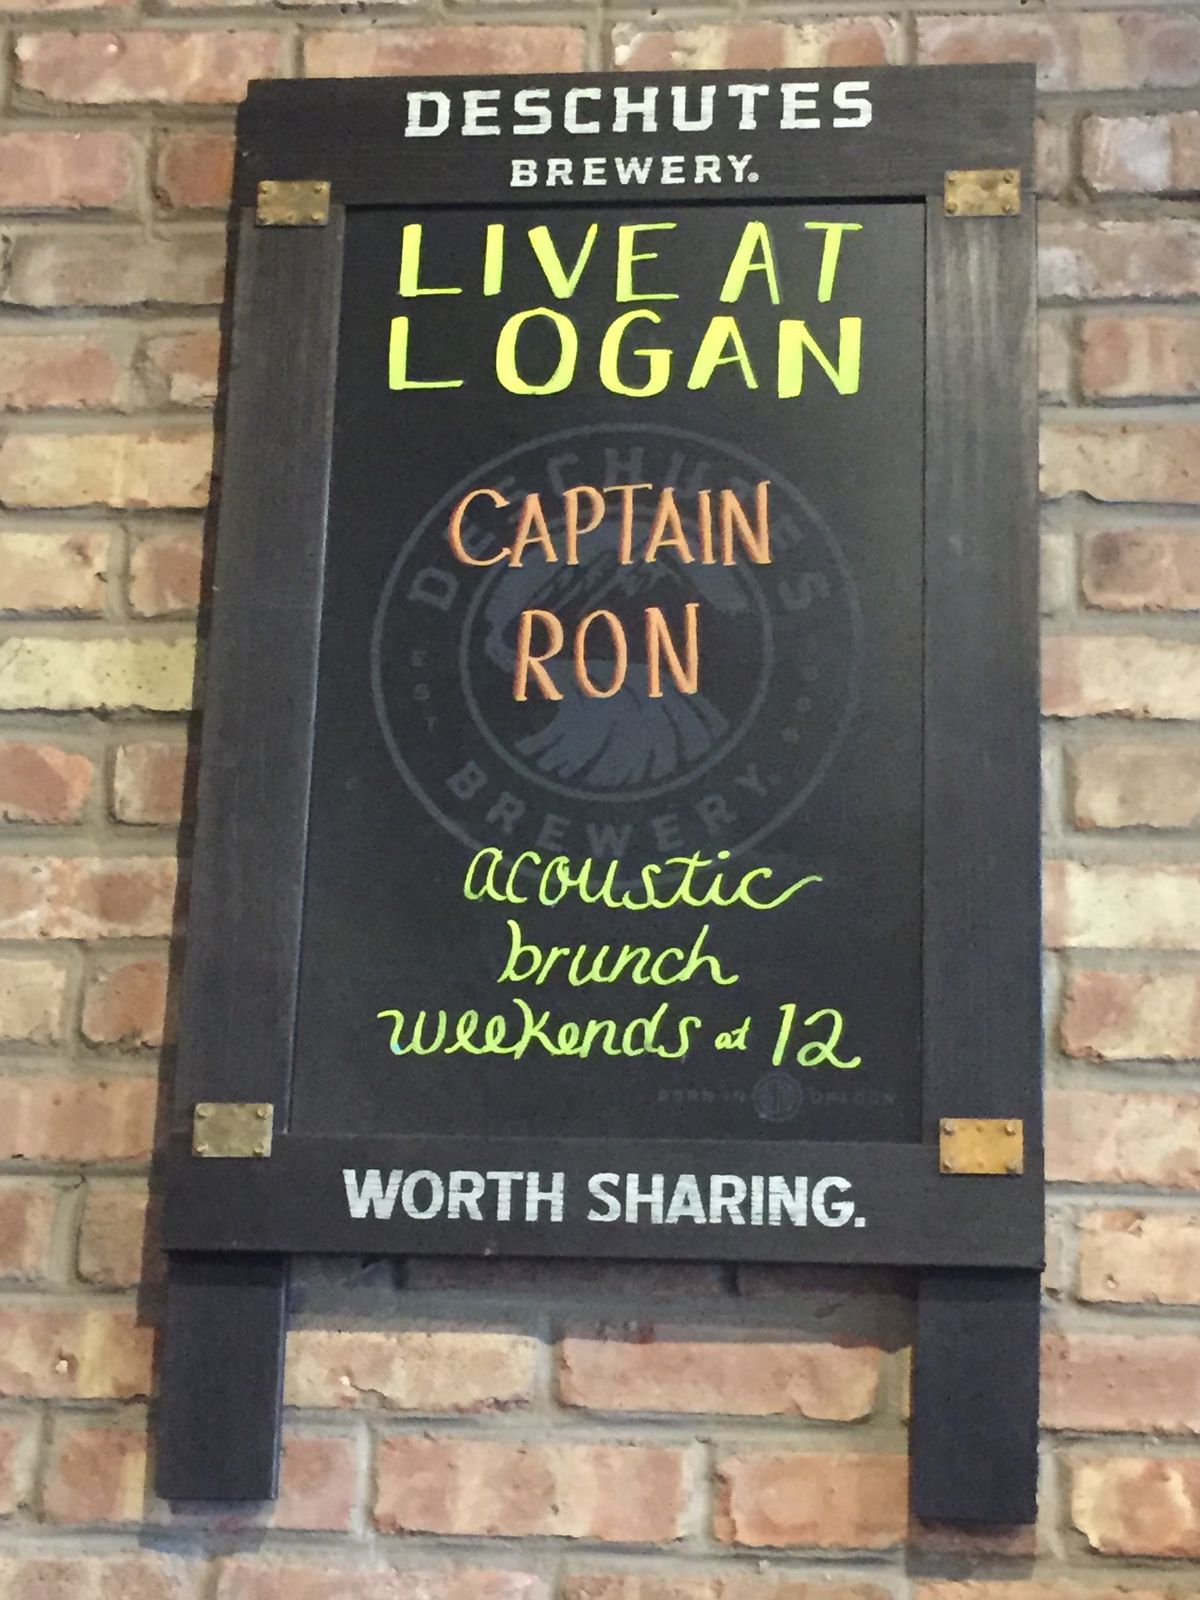 DESCHUTES
BREWERY.
LIVE AT
LOGAN
DESCHUTES
CAPTAIN
RON
BREWERY.
acoustic
brunch
weekends at 12
BORN IN OREGON
WORTH SHARING.